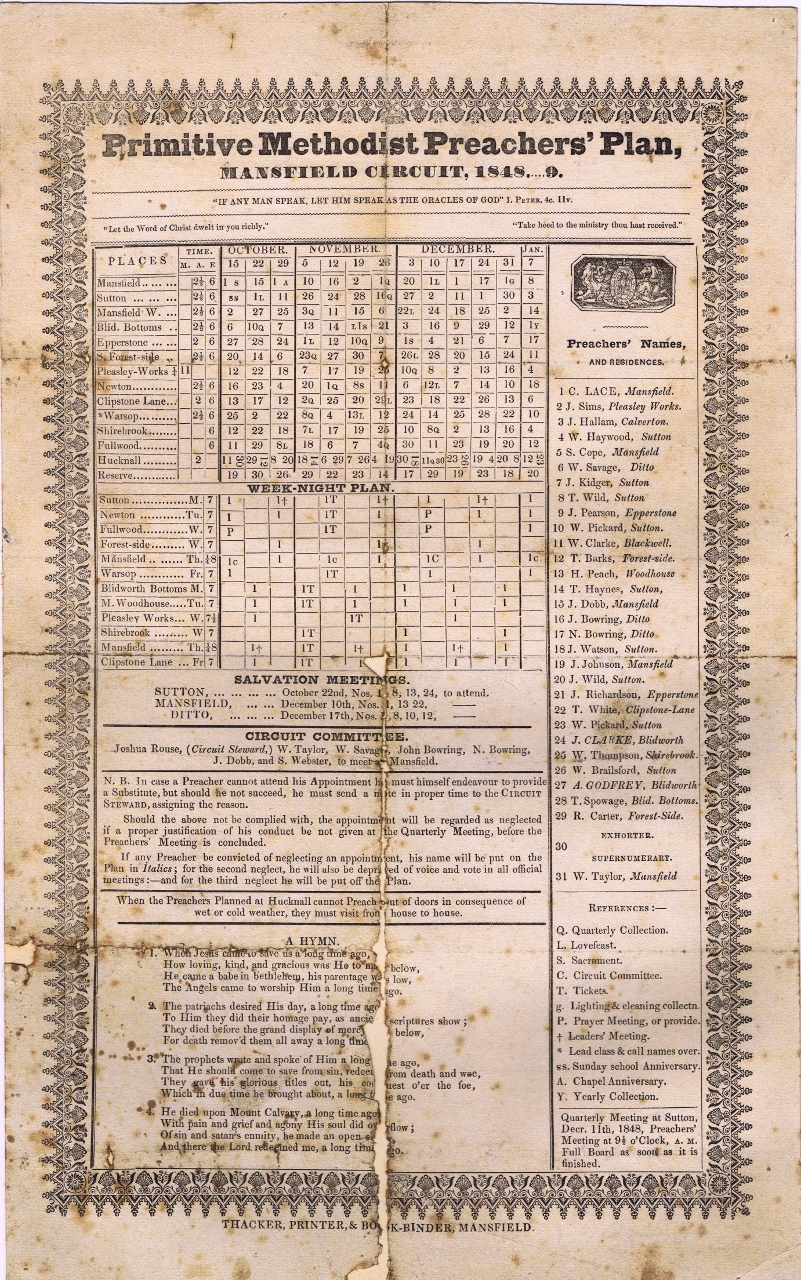 Primitive Methodist Preachers' Plan,
MANSFIELD CIRCUIT, 1848....9.
"IF ANY MAN SPEAK, LET HIM SPEAK AS THE ORACLES OF GOD" I. PETER, 4c. 11v.
"Let the Word of Christ dwelt in you richly." "Take heed to the ministry thou hast received."
PLACES TIME. OCTOBER. NOVEMBER. DECEMBER. JAN.
M. A. E 15 22 29 5 12 19 26 3 10 17 24 31 7
Mansfield 2½ 6 1s 15 1A 10 16 2 1Q 20 1L 1 17 1G 8
Sutton 2½ 6 ss 1L 11 26 24 28 16Q 27 2 11 1 30 3
Mansfield W. 2½ 6 2 27 25 3Q 11 15 6 22L 24 18 25 2 14
Blid. Bottoms 2½ 6 6 10Q 7 13 14 L1s 21 3 16 9 29 12 1Y
Epperstone 2 6 27 28 24 1L 12 10Q 9 1s 4 21 6 7 17
S. Forest-side 2½ 6 20 14 6 23Q 27 30 7 26L 28 20 15 24 11
Pleasley-Works 11 12 22 18 7 17 19 10Q 8 2 13 16 4
Newton 2½ 6 16 23 4 20 1Q 8s 11 6 12L 7 14 10 18
Clipstone Lane 2 6 13 17 12 2Q 25 20 29L 23 18 22 26 13 6
*Warsop 2½ 6 25 2 22 8Q 4 13L 12 24 14 25 28 22 10
Shirebrook 6 12 22 18 7L 17 19 25 10 8Q 2 13 16 4
Fullwood 6 11 29 8L 18 6 7 4Q 30 11 23 19 20 12
Hucknall 2
Reserve 19 30 26 29 22 23 14 17 29 19 23 18 20
WEEK-NIGHT PLAN.
Sutton M. 7 1 1† 1T 1† 1 1† 1
Newton Tu. 7 1 1 1T 1 P 1 1
Fullwood W. 7 P 1T P 1
Forest-side W. 7 1 1 1
Mansfield Th. ½8 1c 1 1c 1 1C 1 1c
Warsop Fr. 7 1 1T 1 1
Blidworth Bottoms M. 7 1 1T 1 1 1 1
M. Woodhouse Tu. 7 1 1T 1 1 1 1
Pleasley Works W. 7½ 1 1T 1 1 1
Shirebrook W 7 1T 1 1
Mansfield Th. ½8 1† 1T 1† 1 1† 1
Clipstone Lane Fr 7 1 1T 1 1 1 1
SALVATION MEETINGS.
SUTTON, October 22nd, Nos. 8, 13, 24, to attend.
MANSFIELD, December 10th, Nos. 1, 13 22, ——
DITTO, December 17th, Nos. 8, 10, 12, ——
CIRCUIT COMMITTEE.
Joshua Rouse, (Circuit Steward,) W. Taylor, W. Savage, John Bowring, N. Bowring,
J. Dobb, and S. Webster, to meet at Mansfield.
N. B. In case a Preacher cannot attend his Appointment he must himself endeavour to provide
a Substitute, but should he not succeed, he must send a note in proper time to the CIRCUIT
STEWARD, assigning the reason.
Should the above not be complied with, the appointment will be regarded as neglected
if a proper justification of his conduct be not given at the Quarterly Meeting, before the
Preachers' Meeting is concluded.
If any Preacher be convicted of neglecting an appointment, his name will be put on the
Plan in Italics; for the second neglect, he will also be deprived of voice and vote in all official
meetings:—and for the third neglect he will be put off the Plan.
When the Preachers Planned at Hucknall cannot Preach out of doors in consequence of
wet or cold weather, they must visit from house to house.
A HYMN.
1. When Jesus came to save us a long time ago,
How loving, kind, and gracious was He to below,
He came a babe in bethlehem, his parentage low,
The Angels came to worship Him a long time ago.
2. The patriachs desired His day, a long time ago
To Him they did their homage pay, as scriptures show;
They died before the grand display of mercy below,
For death remov'd them all away a long time
3. The prophets wrote and spoke of Him a long ago,
That He should come to save from sin, from death and woe,
They gave his glorious titles out, his o'er the foe,
Which in due time he brought about, a long ago.
4. He died upon Mount Calvary, a long time ago
With pain and grief and agony His soul did
Of sin and satan's enmity, he made an open
And there the Lord redeemed me, a long time
THACKER, PRINTER, & BOOK-BINDER, MANSFIELD.
Preachers' Names,
AND RESIDENCES.
1 C. LACE, Mansfield.
2 J. Sims, Pleasley Works.
3 J. Hallam, Calverton.
4 W. Haywood, Sutton
5 S. Cope, Mansfield
6 W. Savage, Ditto
7 J. Kidger, Sutton
8 T. Wild, Sutton
9 J. Pearson, Epperstone
10 W. Pickard, Sutton.
11 W. Clarke, Blackwell.
12 T. Barks, Forest-side.
13 H. Peach, Woodhouse
14 T. Haynes, Sutton,
15 J. Dobb, Mansfield
16 J. Bowring, Ditto
17 N. Bowring, Ditto
18 J. Watson, Sutton.
19 J. Johnson, Mansfield
20 J. Wild, Sutton.
21 J. Richardson, Epperstone
22 T. White, Clipstone-Lane
23 W. Pickard, Sutton
24 J. CLARKE, Blidworth
25 W. Thompson, Shirebrook.
26 W. Brailsford, Sutton
27 A. GODFREY, Blidworth
28 T. Spowage, Blid. Bottoms.
29 R. Carter, Forest-Side.
EXHORTER.
30
SUPERNUMERARY.
31 W. Taylor, Mansfield
REFERENCES:—
Q. Quarterly Collection.
L. Lovefeast.
S. Sacrament.
C. Circuit Committee.
T. Tickets.
g. Lighting & cleaning collectn.
P. Prayer Meeting, or provide.
† Leaders' Meeting.
* Lead class & call names over.
ss. Sunday school Anniversary.
A. Chapel Anniversary.
Y. Yearly Collection.
Quarterly Meeting at Sutton,
Decr. 11th, 1848, Preachers'
Meeting at 9½ o'Clock, A. M.
Full Board as soon as it is
finished.